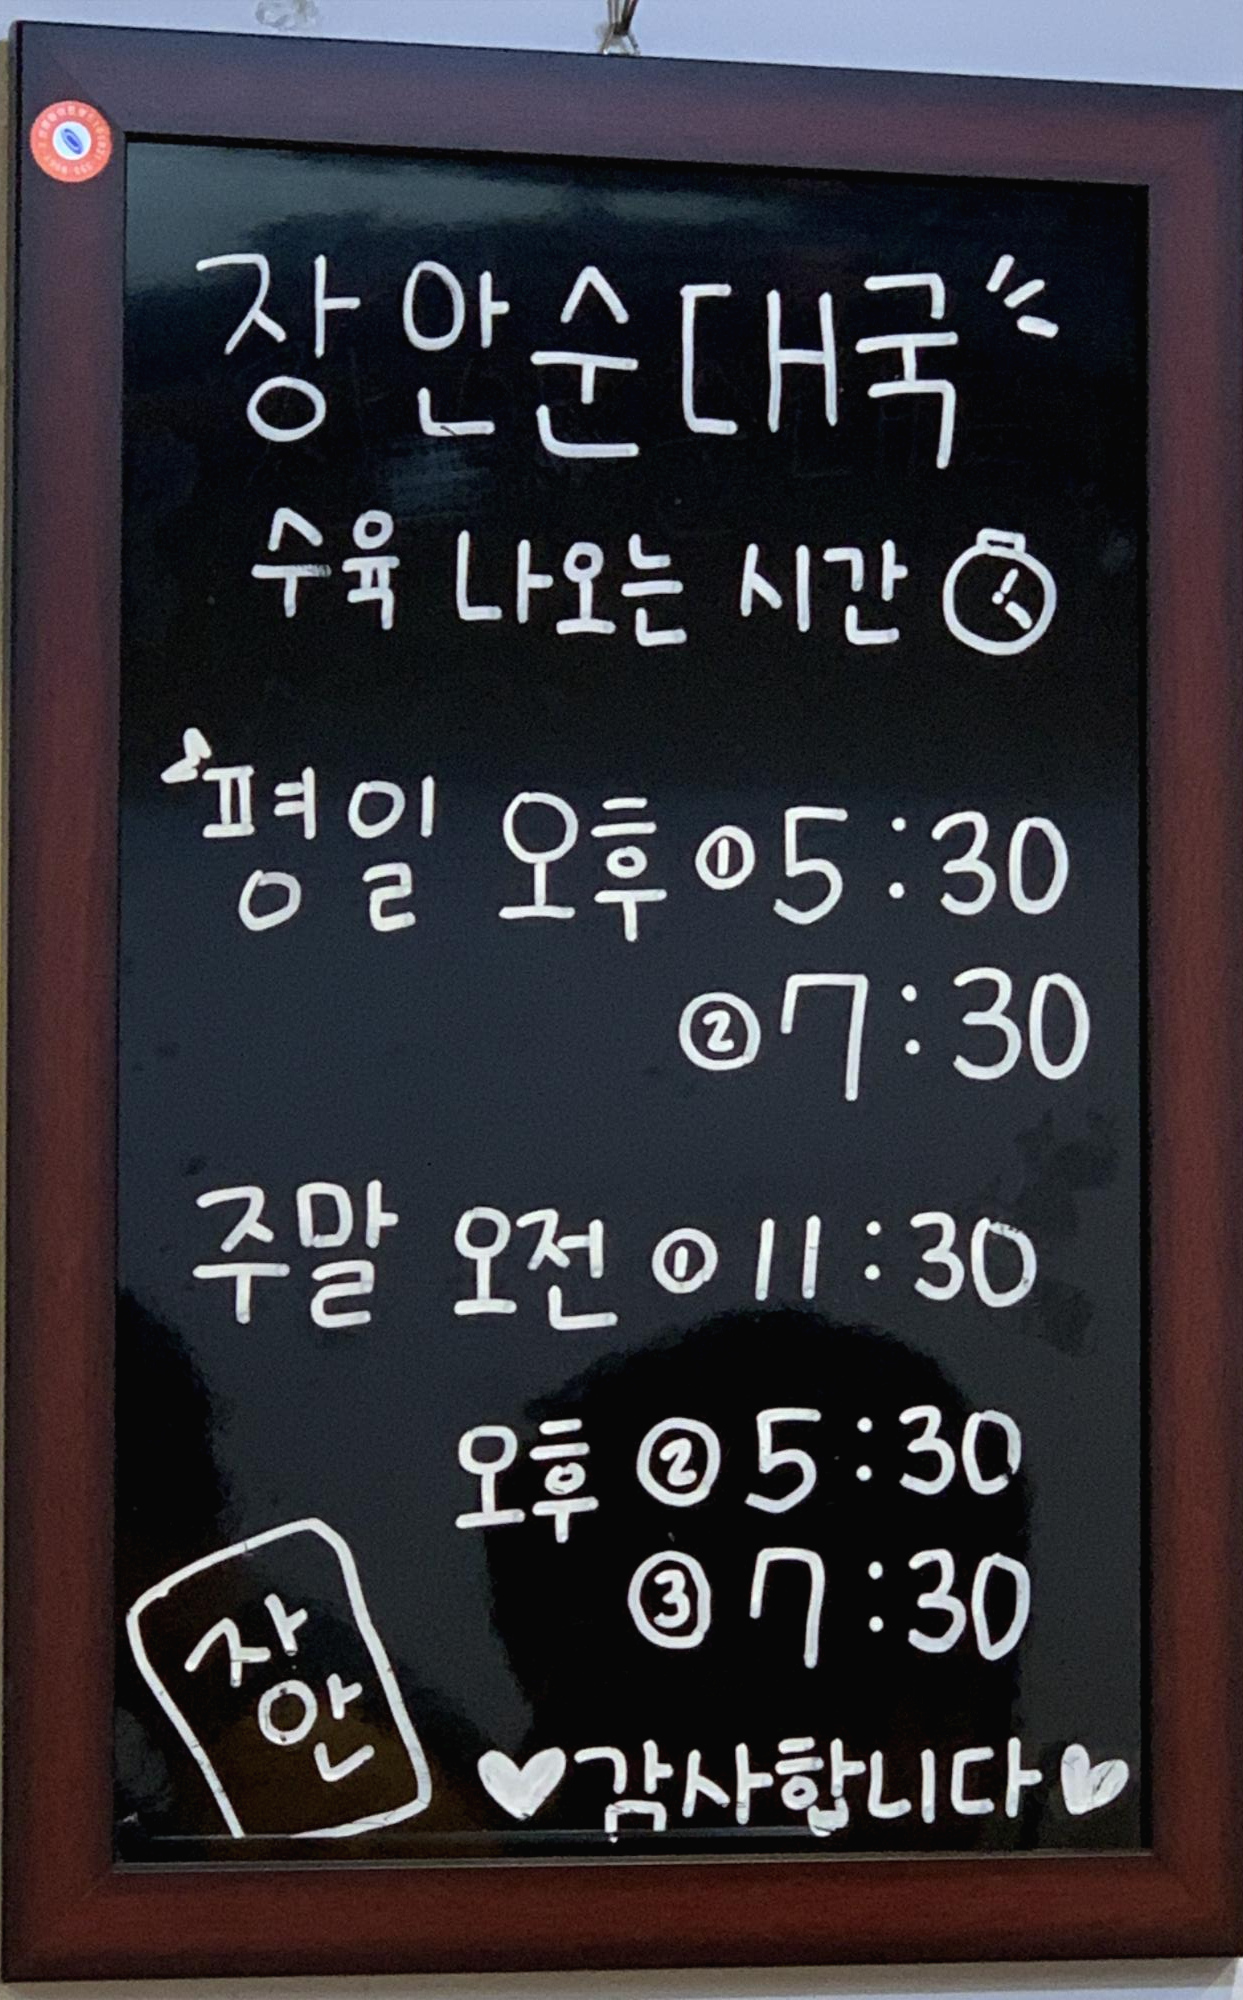 장안순대국
수육 나오는 시간
평일 오후 ① 5:30
② 7:30
주말 오전 ① 11:30
오후 ② 5:30
③ 7:30
장안
♥감사합니다♥